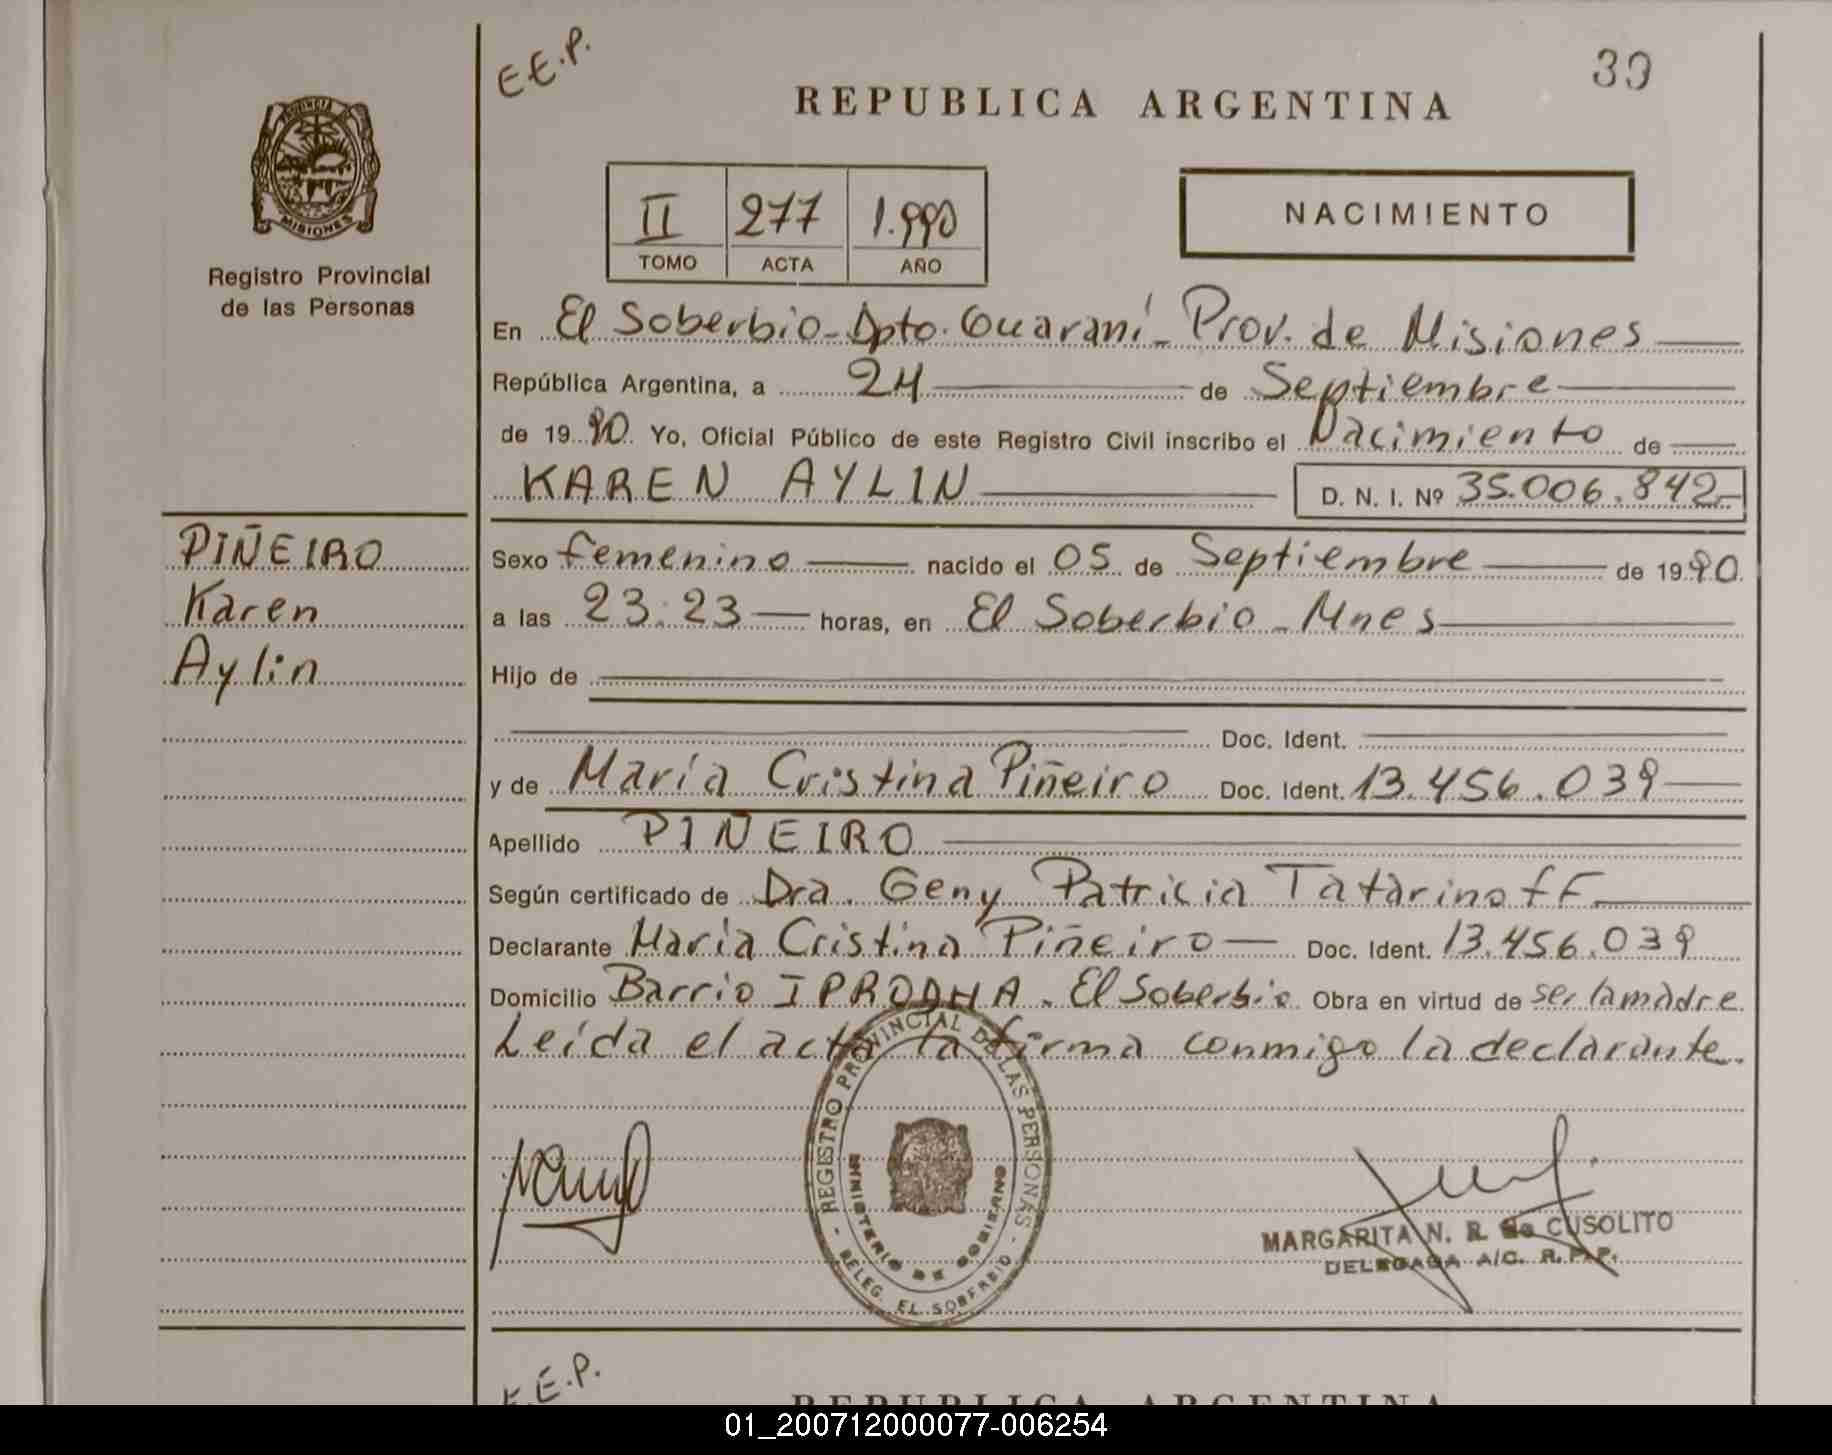 E.E.P.
39
REPUBLICA ARGENTINA
PROVINCIA
MISIONES
Registro Provincial
de las Personas
II 277 1.990
TOMO ACTA AÑO
NACIMIENTO
En El Soberbio-Dpto. Guaraní-Prov. de Misiones
República Argentina, a 24 de Septiembre
de 1990. Yo, Oficial Público de este Registro Civil inscribo el Nacimiento de
KAREN AYLIN D. N. I. Nº 35.006.842-
PIÑEIRO
Karen
Aylin
Sexo femenino nacido el 05 de Septiembre de 1990.
a las 23:23 horas, en El Soberbio - Mnes
Hijo de
Doc. Ident.
y de María Cristina Piñeiro Doc. Ident. 13.456.039
Apellido PIÑEIRO
Según certificado de Dra. Geny Patricia Tatarinoff
Declarante María Cristina Piñeiro Doc. Ident. 13.456.039
Domicilio Barrio IPRODHA. El Soberbio Obra en virtud de ser la madre
Leída el acta la firma conmigo la declarante.
REGISTRO PROVINCIAL DE LAS PERSONAS
MINISTERIO DE GOBIERNO
DELEG. EL SOBERBIO
MARGARITA N. R. de CUSOLITO
DELEGADA A/C. R.P.P.
E.E.P.
REPUBLICA ARGENTINA
01_200712000077-006254